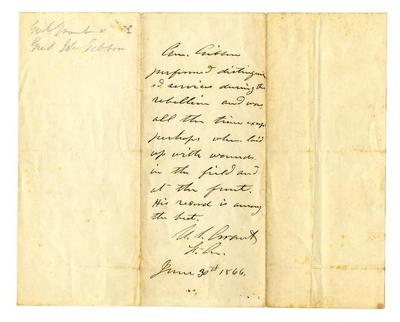 Genl Grant
Genl Jno Gibbon
Gen. Gibbon
performed distinguish
ed services during the
rebellion and was
all the time except
perhaps when laid
up with wounds
in the field and
at the front.
His record is among
the best.
U. S. Grant
Lt. Gn.
June 30th 1866.